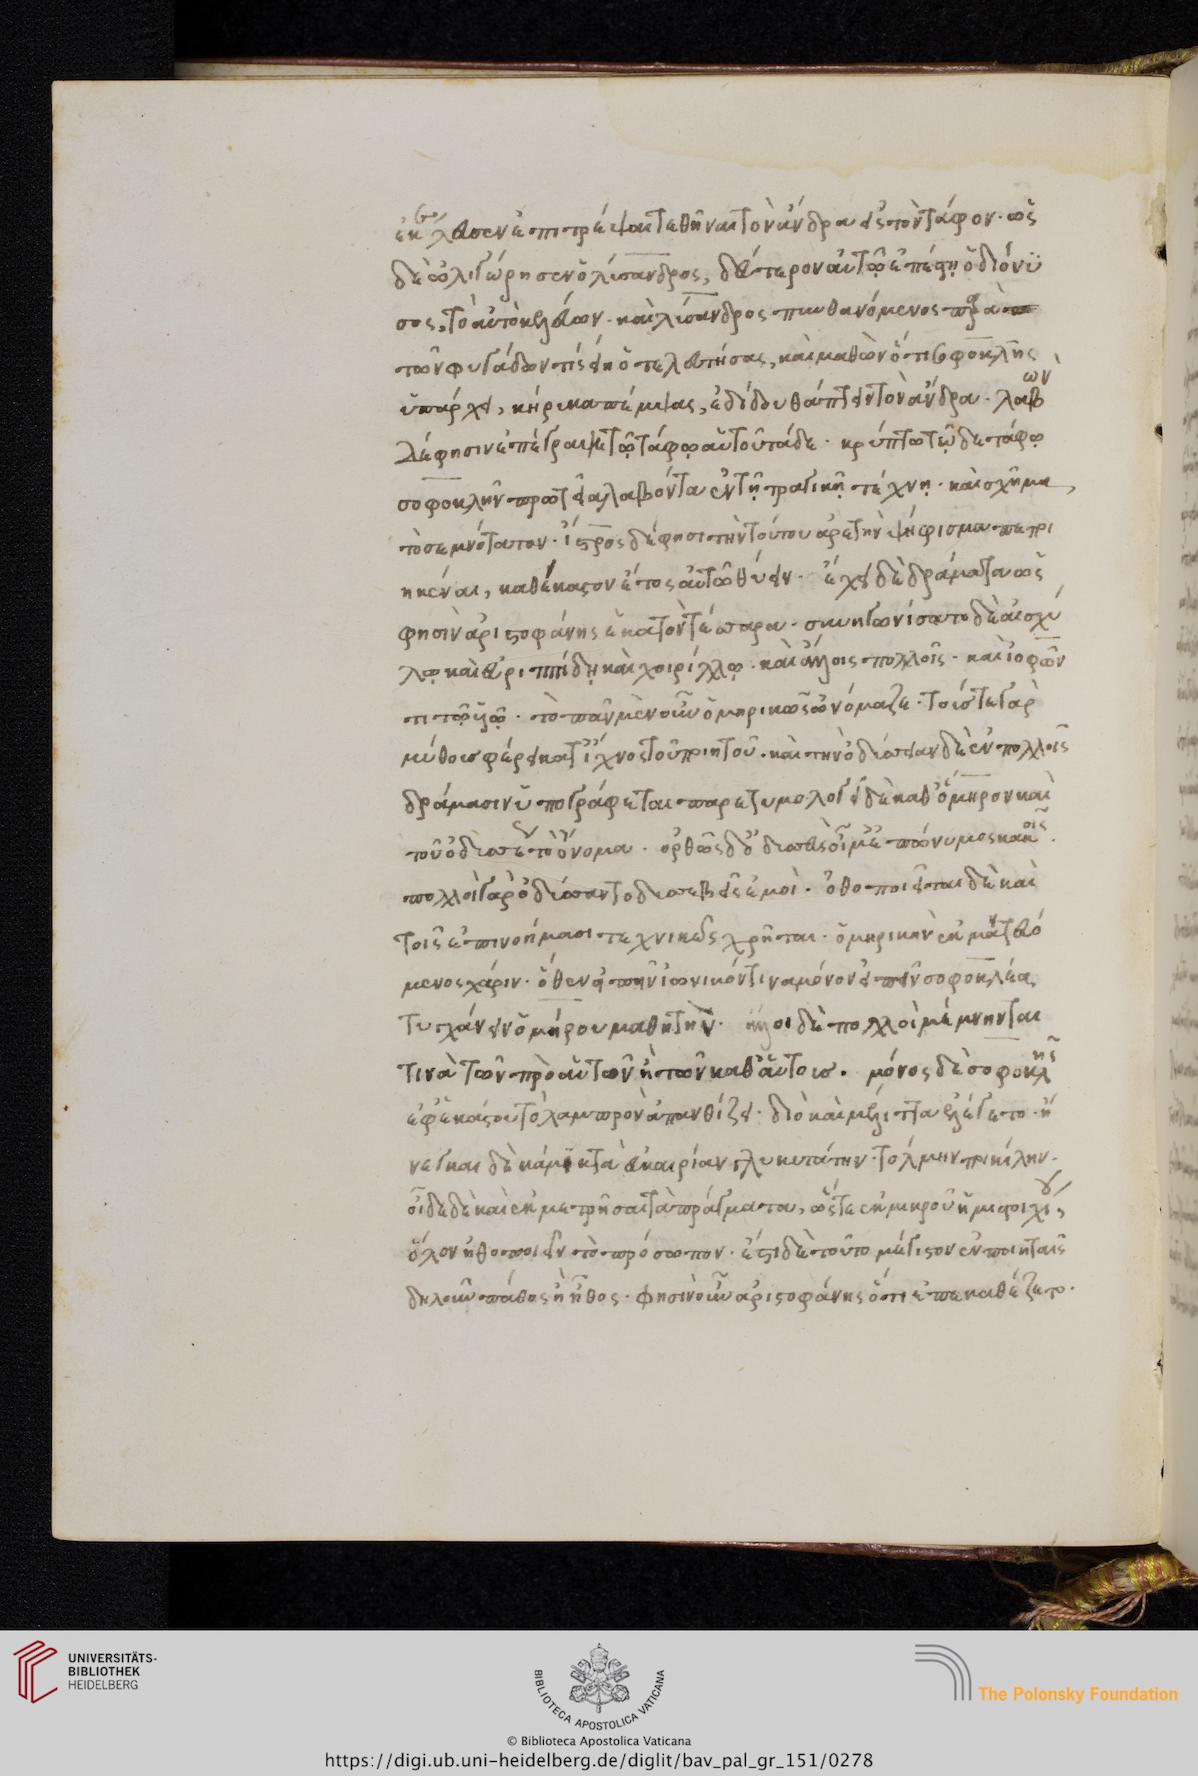 ἐκέλευσεν ἐπιτρέψαι τεθῆναι τὸν ἄνδρα εἰς τὸν τάφον· ὡς
δὲ ὠλιγώρησεν ὁ λίσανδρος, δεύτερον αὐτῷ ἐπέστη ὁ διόνυ
σος, τὸ αὐτὸ κελεύων· καὶ λύσανδρος πυνθανόμενος παρὰ
τῶν φυγάδων τίς εἴη ὁ τελευτήσας, καὶ μαθὼν ὅτι σοφοκλῆς
ὑπάρχει, κήρυκα πέμψας, ἐδίδου θάπτειν τὸν ἄνδρα· λοβων
δέ φησιν ἐπιγέγραπται τῷ τάφῳ αὐτοῦ τάδε· κρύπτω τῷδε τάφῳ
σοφοκλῆν πρωτεῖα λαβόντα ἐν τῇ τραγικῇ τέχνῃ· καὶ σχῆμα
τὸ σεμνότατον· ἴστρος δέ φησι τὴν τούτου ἀρετὴν ψήφισμα πεποι
ηκέναι, καθ' ἕκαστον ἔτος αὐτῷ θύειν· ἔχει δὲ δράματα ὡς
φησὶν ἀριστοφάνης ἑκατὸν τέσσαρα· συνηγωνίσατο δὲ αἰσχύ
λῳ καὶ εὐριπίδῃ καὶ χοιρίλλῳ· καὶ ἄλλοις πολλοῖς· καὶ ἰοφῶν
τι τῷ υἱῷ· τὸ πᾶν μὲν οὖν ὁμηρικῶς ὠνόμαζε· τοίς τε γὰρ
μύθοις φέρει κατ' ἴχνος τοῦ ποιητοῦ· καὶ τὴν ὀδύσσειαν δὲ ἐν πολλοῖς
δράμασιν ὑπογράφεται παρετυμολογεῖ δὲ καθ' ὅμηρον καὶ
τοῦ ὀδυσσέως τὸ ὄνομα· ὀρθῶς δ' ὀδυσσεύς εἰμ' ἐπώνυμος κακοῖς·
πολλοὶ γὰρ ὠδύσαντο δυσσεβεῖς ἐμοὶ· ἠθοποιεῖται δὲ καὶ
τοῖς ἐπινοήμασι τεχνικῶς χρῆται· ὁμηρικὴν ἐκματτευό
μενος χάριν· ὅθεν εἰπεῖν ἰωνικόν τινα μόνον εἰπεῖν σοφοκλέα
τυγχάνειν ὁμήρου μαθητήν· ἄλλοι δὲ πολλοὶ μέμνηνται
τινὰ τῶν πρὸ αὐτῶν ἢ τῶν καθ' αὑτοις· μόνος δὲ σοφοκλῆς
ἐφ' ἑκάστου τὸ λαμπρὸν ἀπανθίζει· διὸ καὶ μέλιττα ἐλέγετο· ἤ
νεγκαι δὲ κάμικτα εὐκαιρίαν γλυκυτάτην· τόλμην ποικίλην·
οἶδε δὲ καὶ ἐκμετρῆσαι τὰ πράγματα, ὥστε ἐκ μικροῦ ἡμιστιχίου,
ὅλον ἠθοποιεῖν τὸ πρόσωπον· ἔστι δὲ τοῦτο μέγιστον ἐν ποιηταῖς
δηλοῦν πάθος ἢ ἦθος· φησὶν οὖν ἀριστοφάνης ὅτι ἐπεκαθέζετο·
UNIVERSITÄTS-
BIBLIOTHEK
HEIDELBERG
BIBLIOTECA APOSTOLICA VATICANA
The Polonsky Foundation
© Biblioteca Apostolica Vaticana
https://digi.ub.uni-heidelberg.de/diglit/bav_pal_gr_151/0278